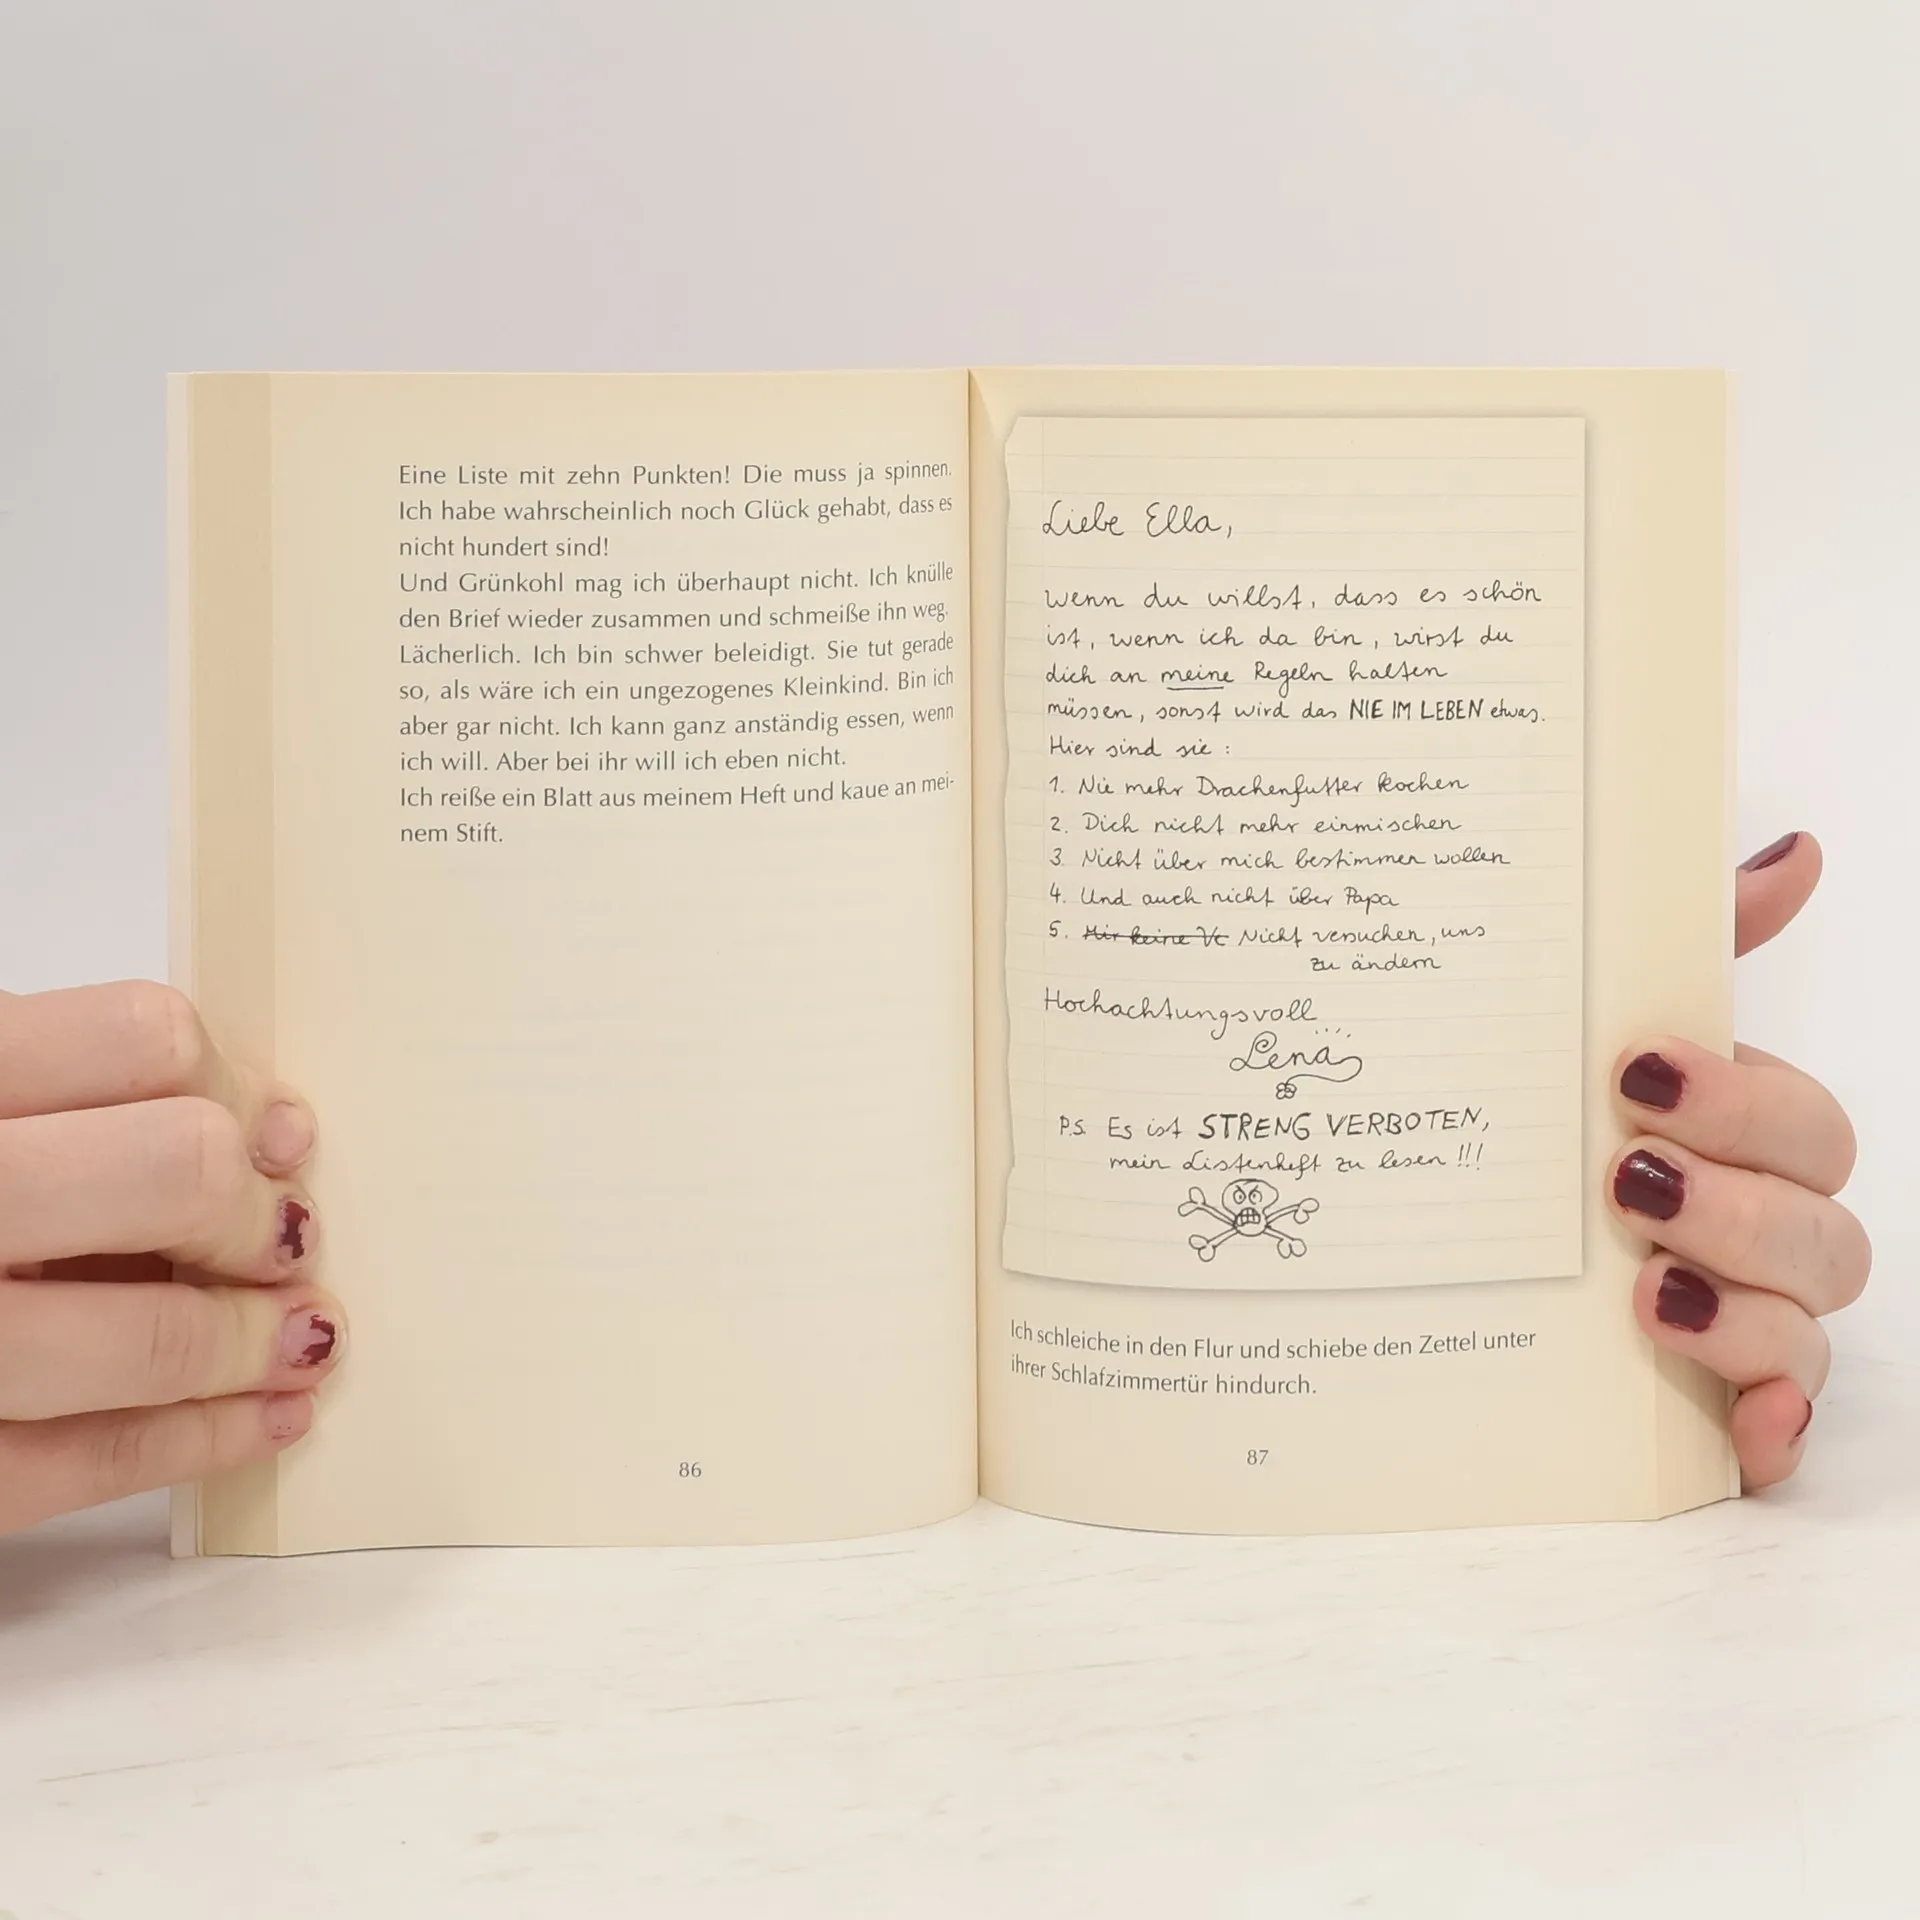 Eine Liste mit zehn Punkten! Die muss ja spinnen.
Ich habe wahrscheinlich noch Glück gehabt, dass es
nicht hundert sind!
Und Grünkohl mag ich überhaupt nicht. Ich knülle
den Brief wieder zusammen und schmeiße ihn weg.
Lächerlich. Ich bin schwer beleidigt. Sie tut gerade
so, als wäre ich ein ungezogenes Kleinkind. Bin ich
aber gar nicht. Ich kann ganz anständig essen, wenn
ich will. Aber bei ihr will ich eben nicht.
Ich reiße ein Blatt aus meinem Heft und kaue an mei-
nem Stift.
86
Liebe Ella,
wenn du willst, dass es schön
ist, wenn ich da bin, wirst du
dich an meine Regeln halten
müssen, sonst wird das NIE IM LEBEN etwas.
Hier sind sie:
1. Nie mehr Drachenfutter kochen
2. Dich nicht mehr einmischen
3. Nicht über mich bestimmen wollen
4. Und auch nicht über Papa
5. Mir keine Vc Nicht versuchen, uns
zu ändern
Hochachtungsvoll
Lena
P.S. Es ist STRENG VERBOTEN,
mein Listenheft zu lesen!!!
Ich schleiche in den Flur und schiebe den Zettel unter
ihrer Schlafzimmertür hindurch.
87